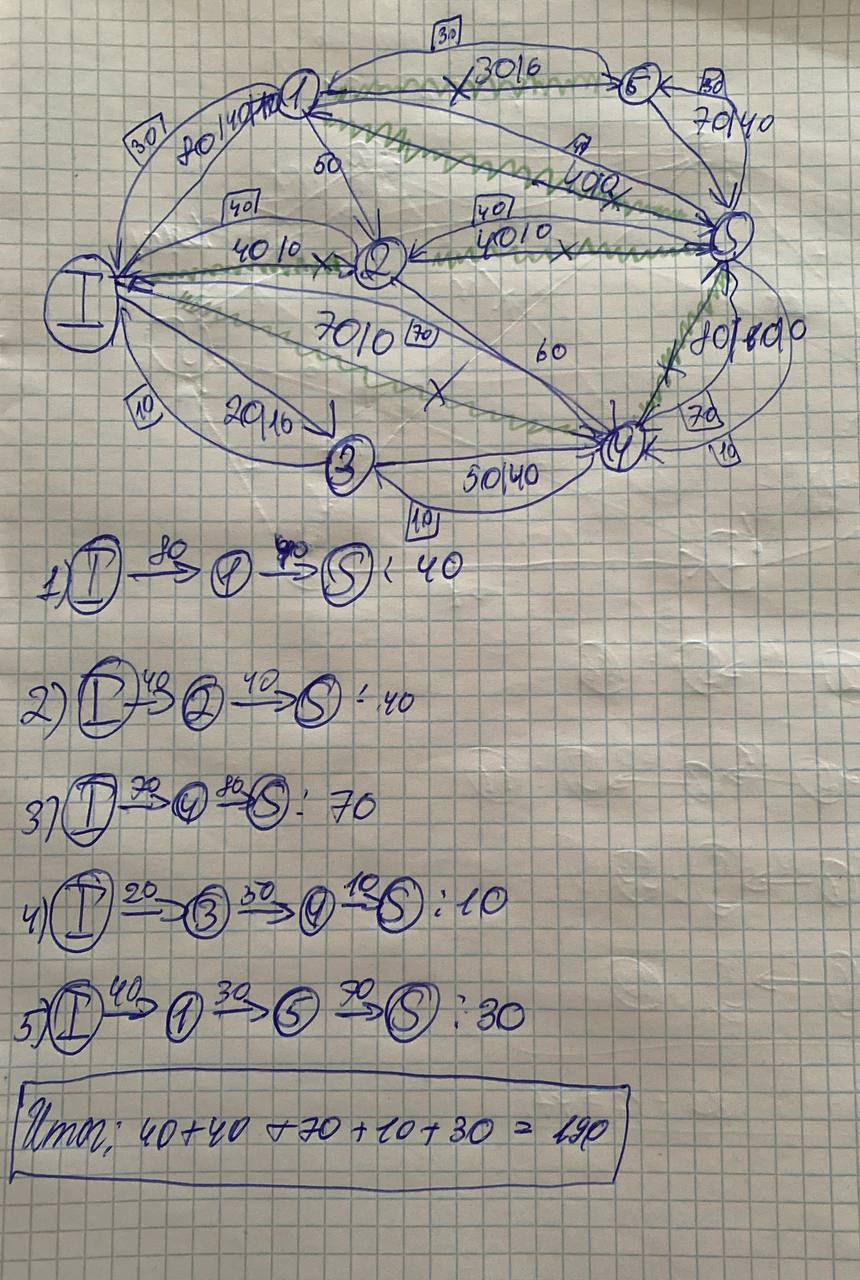 30
30|0
5
30
70|40
1
30
80|40|10
50
40
40|0
40
40|0
2
40
40|0
S
I
70|0
70
60
80|10|0
10
20|10
3
50|40
4
70
10
10
1) I 80 → 1 40 → S : 40
2) I 40 → 2 40 → S : 40
3) I 70 → 4 80 → S : 70
4) I 20 → 3 50 → 4 10 → S : 10
5) I 40 → 1 30 → 5 70 → S : 30
Итог: 40+40+70+10+30 = 190